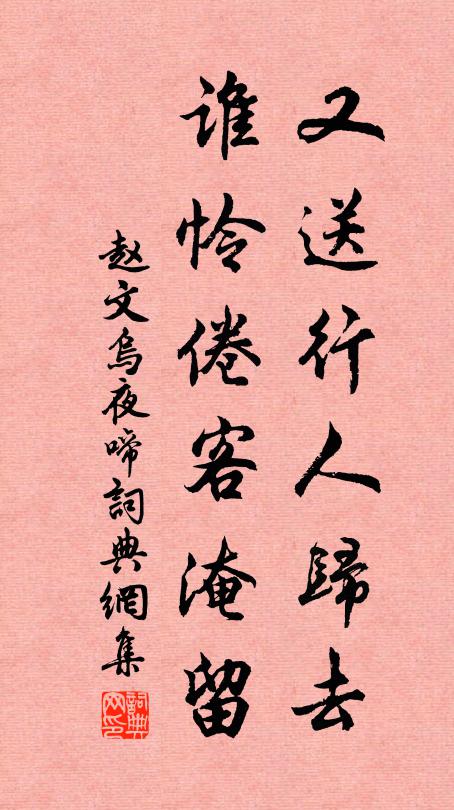 又送行人歸去
谁怜倦客淹留
赵文烏夜啼詞典網集
詞典网印